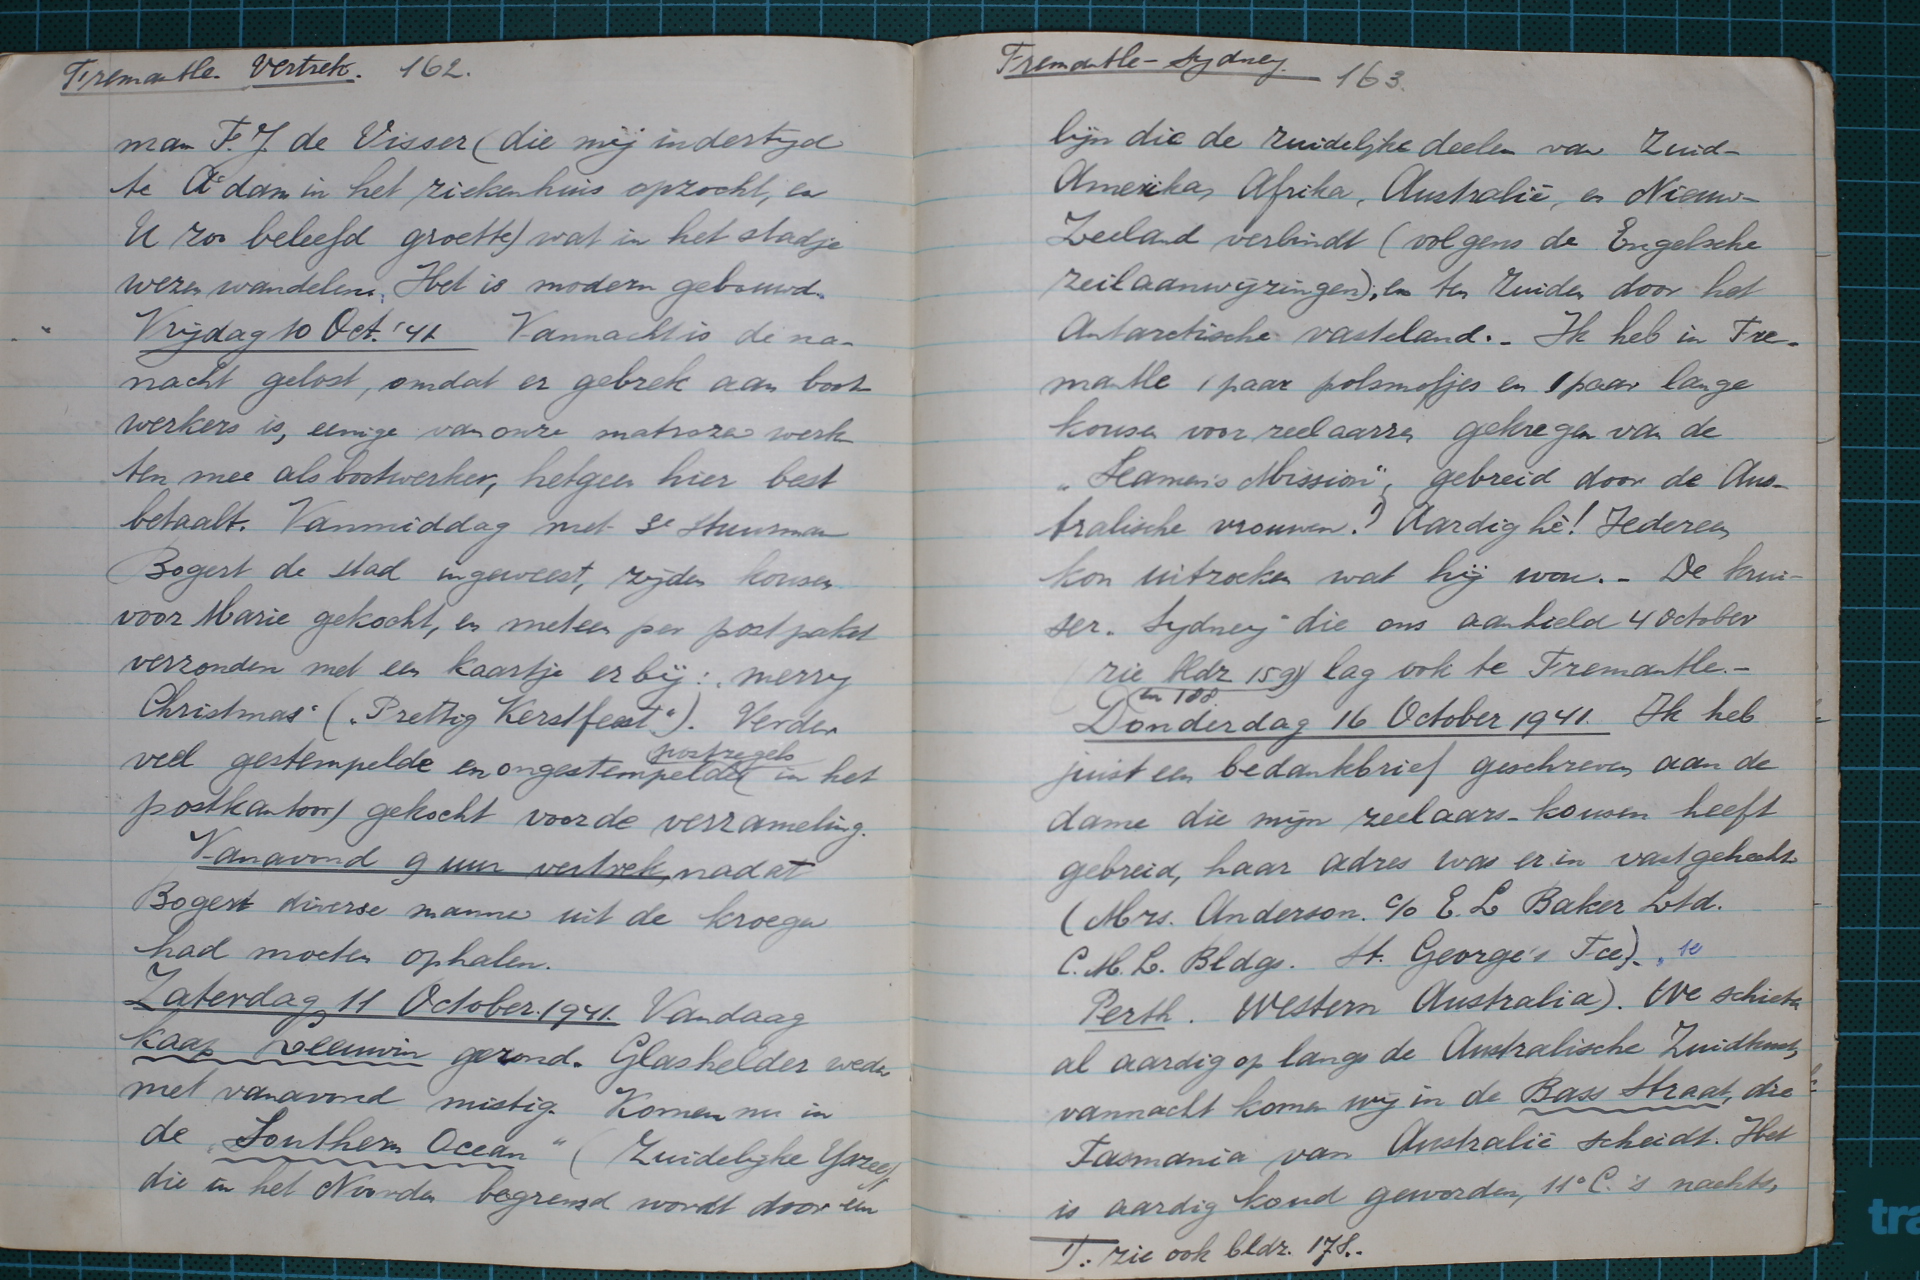 Fremantle. Vertrek. 162.
man F. J. de Visser (die mij indertijd
te A'dam in het ziekenhuis opzocht, en
U zoo beleefd groette) wat in het stadje
wezen wandelen. Het is modern gebouwd.
Vrijdag 10 Oct. '41 Vannacht is de na-
nacht gelost, omdat er gebrek aan boot
werkers is, eenige van onze matrozen werk
ten mee als bootwerker, hetgeen hier best
betaalt. Vanmiddag met 3e Stuurman
Bogert de stad ingeweest, zijden kousen
voor Marie gekocht, en meteen per postpaket
verzonden met een kaartje erbij: „merry
Christmas" („Prettig Kerstfeest"). Verder
veel gestempelde en ongestempelde postzegels (in het
postkantoor) gekocht voor de verzameling.
Vanavond 9 uur vertrek, nadat
Bogert diverse mannen uit de kroegen
had moeten ophalen.
Zaterdag 11 October. 1941. Vandaag
kaap Leeuwin gerond. Glashelder weder
met vanavond mistig. Komen nu in
de „Southern Ocean" (Zuidelijke IJszee)
die in het Noorden begrensd wordt door een
Fremantle - Sydney. 163.
lijn die de zuidelijke deelen van Zuid-
Amerika, Afrika, Australië, en Nieuw-
Zeeland verbindt (volgens de Engelsche
zeilaanwijzingen), en ten Zuiden door het
Antarctische vasteland. - Ik heb in Fre-
mantle 1 paar polsmofjes en 1 paar lange
kousen voor zeelaarzen gekregen van de
„Seamen's Mission", gebreid door de Aus-
tralische vrouwen! 1) Aardig hè! Iedereen
kon uitzoeken wat hij wou. - De krui-
ser „Sydney" die ons aanhield 4 October
(zie bldz 159) lag ook te Fremantle. -
en 188.
Donderdag 16 October 1941. Ik heb
juist een bedankbrief geschreven aan de
dame die mijn zeelaars-kousen heeft
gebreid, haar adres was er in vastgehecht
(Mrs. Anderson. c/o E. L Baker Ltd.
C. M. L. Bldgs. St. George's Tce). te
Perth. Western Australia). We schieten
al aardig op langs de Australische Zuidkust,
vannacht komen wij in de Bass Straat, die
Tasmania van Australië scheidt. Het
is aardig koud geworden, 11° C. 's nachts,
1). zie ook bldz. 178. -